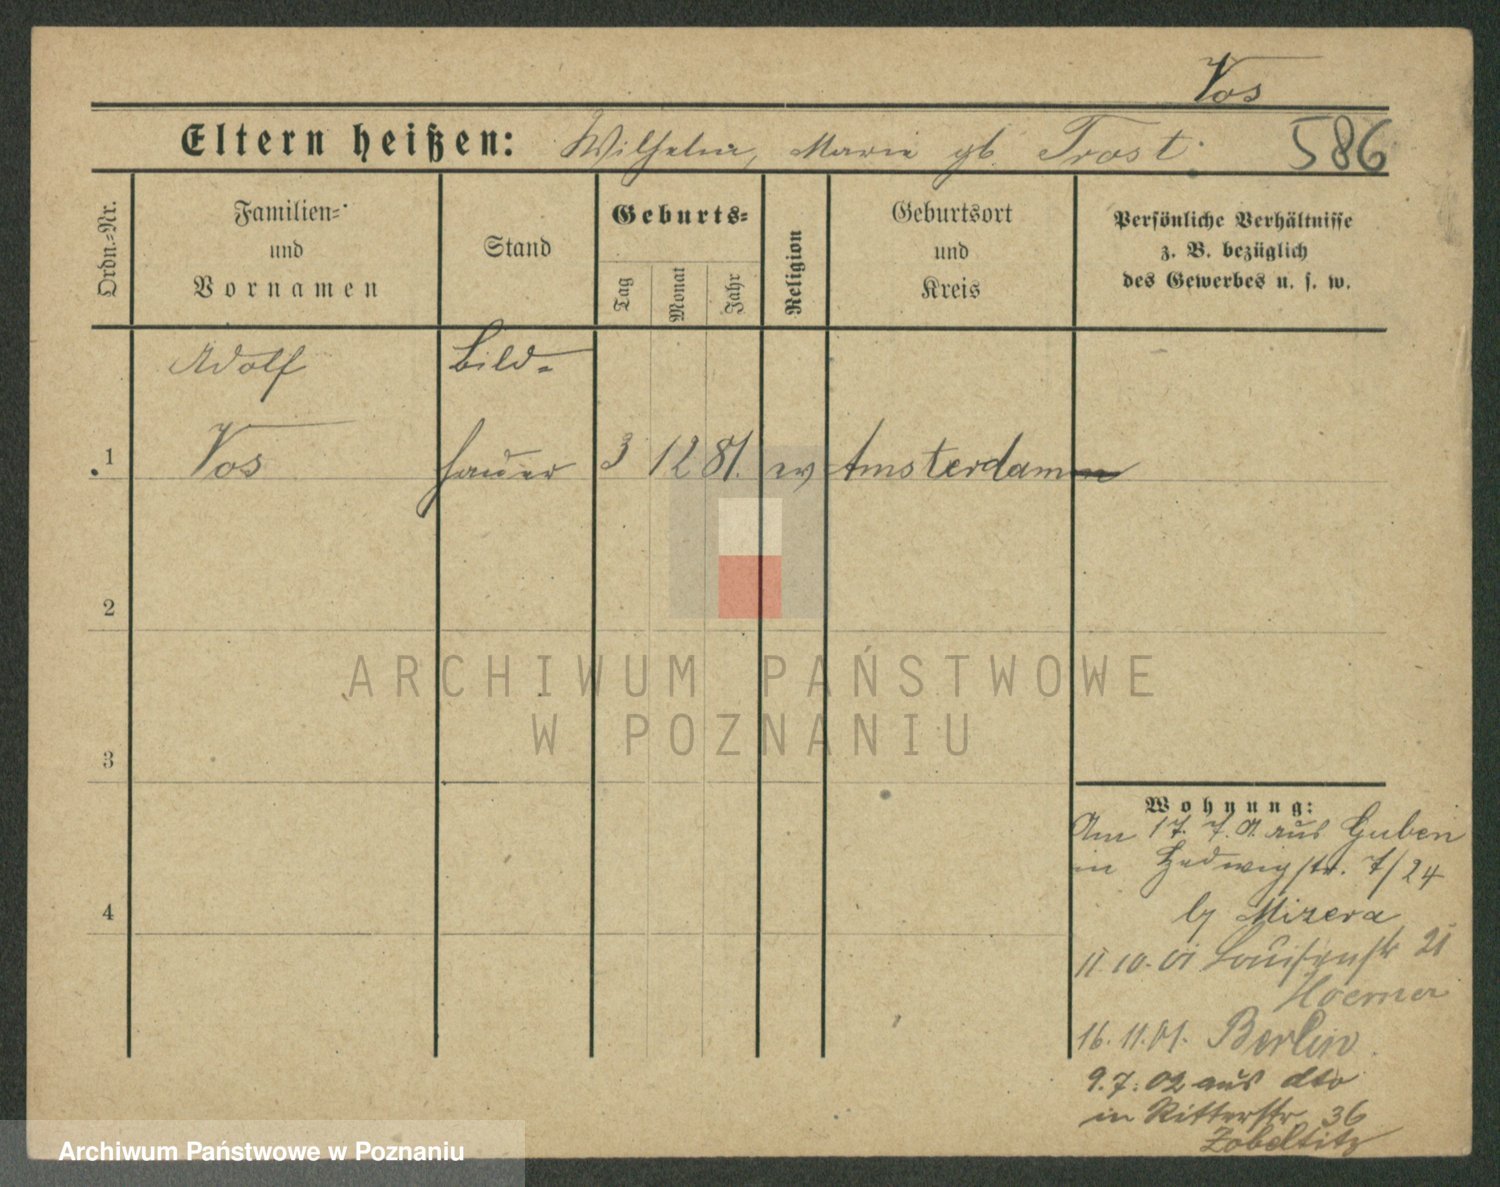 Vos
Eltern heißen: Wilhelm, Marie gb. Trost.
586
Ordn.-Nr.
Familien-
und
Vornamen
Stand
Geburts-
Tag
Monat
Jahr
Religion
Geburtsort
und
Kreis
Persönliche Verhältnisse
z. B. bezüglich
des Gewerbes u. s. w.
Adolf Bild-
1 Vos hauer 3 12 81. ev Amsterdam
2
ARCHIWUM PAŃSTWOWE
W POZNANIU
3
Wohnung:
Am 17. 7. 01. aus Guben
in Hedwigstr. 7/24
by Mizera
4
11.10.01 Louisenstr 21
16.11.01. Berlin
9.7.02 aus dto
in Ritterstr. 36
Zobeltitz
Archiwum Państwowe w Poznaniu